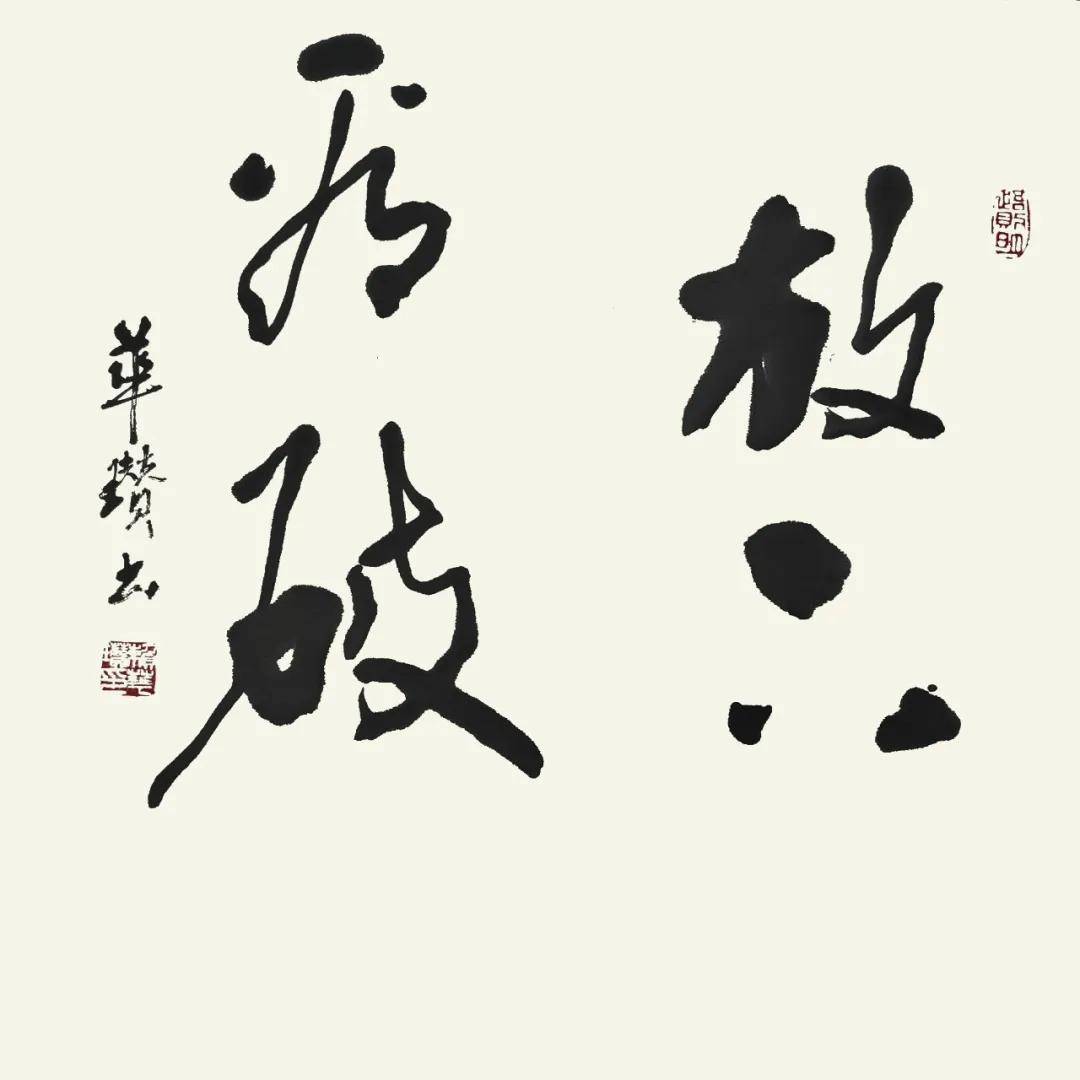 放下
看破
華瓚书